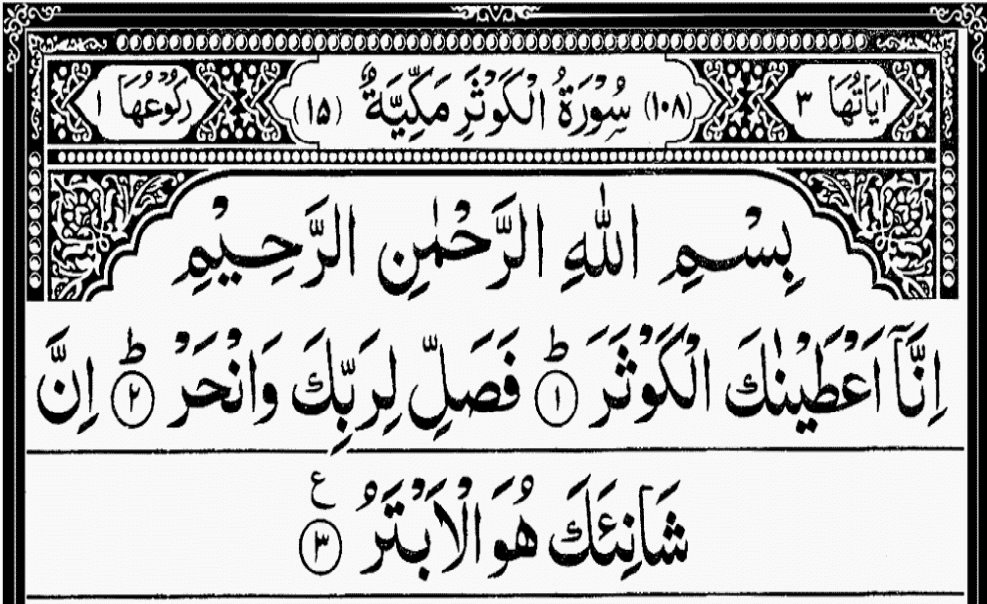 اٰيَاتُهَا ٣ (١٠٨) سُوْرَةُ الْكَوْثَرِ مَكِّيَّةٌ (١٥) رُكُوْعُهَا ١
بِسْمِ اللّٰهِ الرَّحْمٰنِ الرَّحِيْمِ
اِنَّاۤ اَعْطَيْنٰكَ الْكَوْثَرَ ؕ ١ فَصَلِّ لِرَبِّكَ وَانْحَرْ ؕ ٢ اِنَّ
شَانِئَكَ هُوَ الْاَبْتَرُ ٣ ع